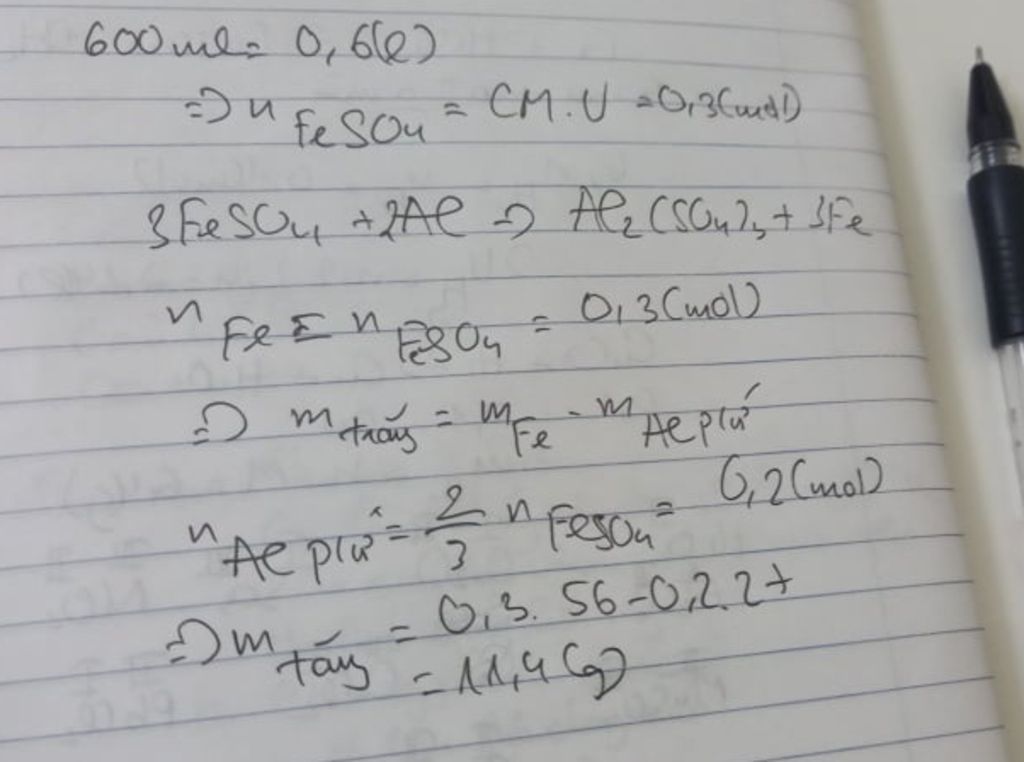 600ml = 0,6(l)
=> n FeSO4 = CM.V = 0,3(mol)
3FeSO4 + 2Al => Al2(SO4)3 + 3Fe
n Fe = n FeSO4 = 0,3(mol)
=> m tăng = m Fe - m Al pứ
n Al pứ = 2/3 n FeSO4 = 0,2(mol)
=> m tăng = 0,3. 56-0,2.27
= 11,4(g)